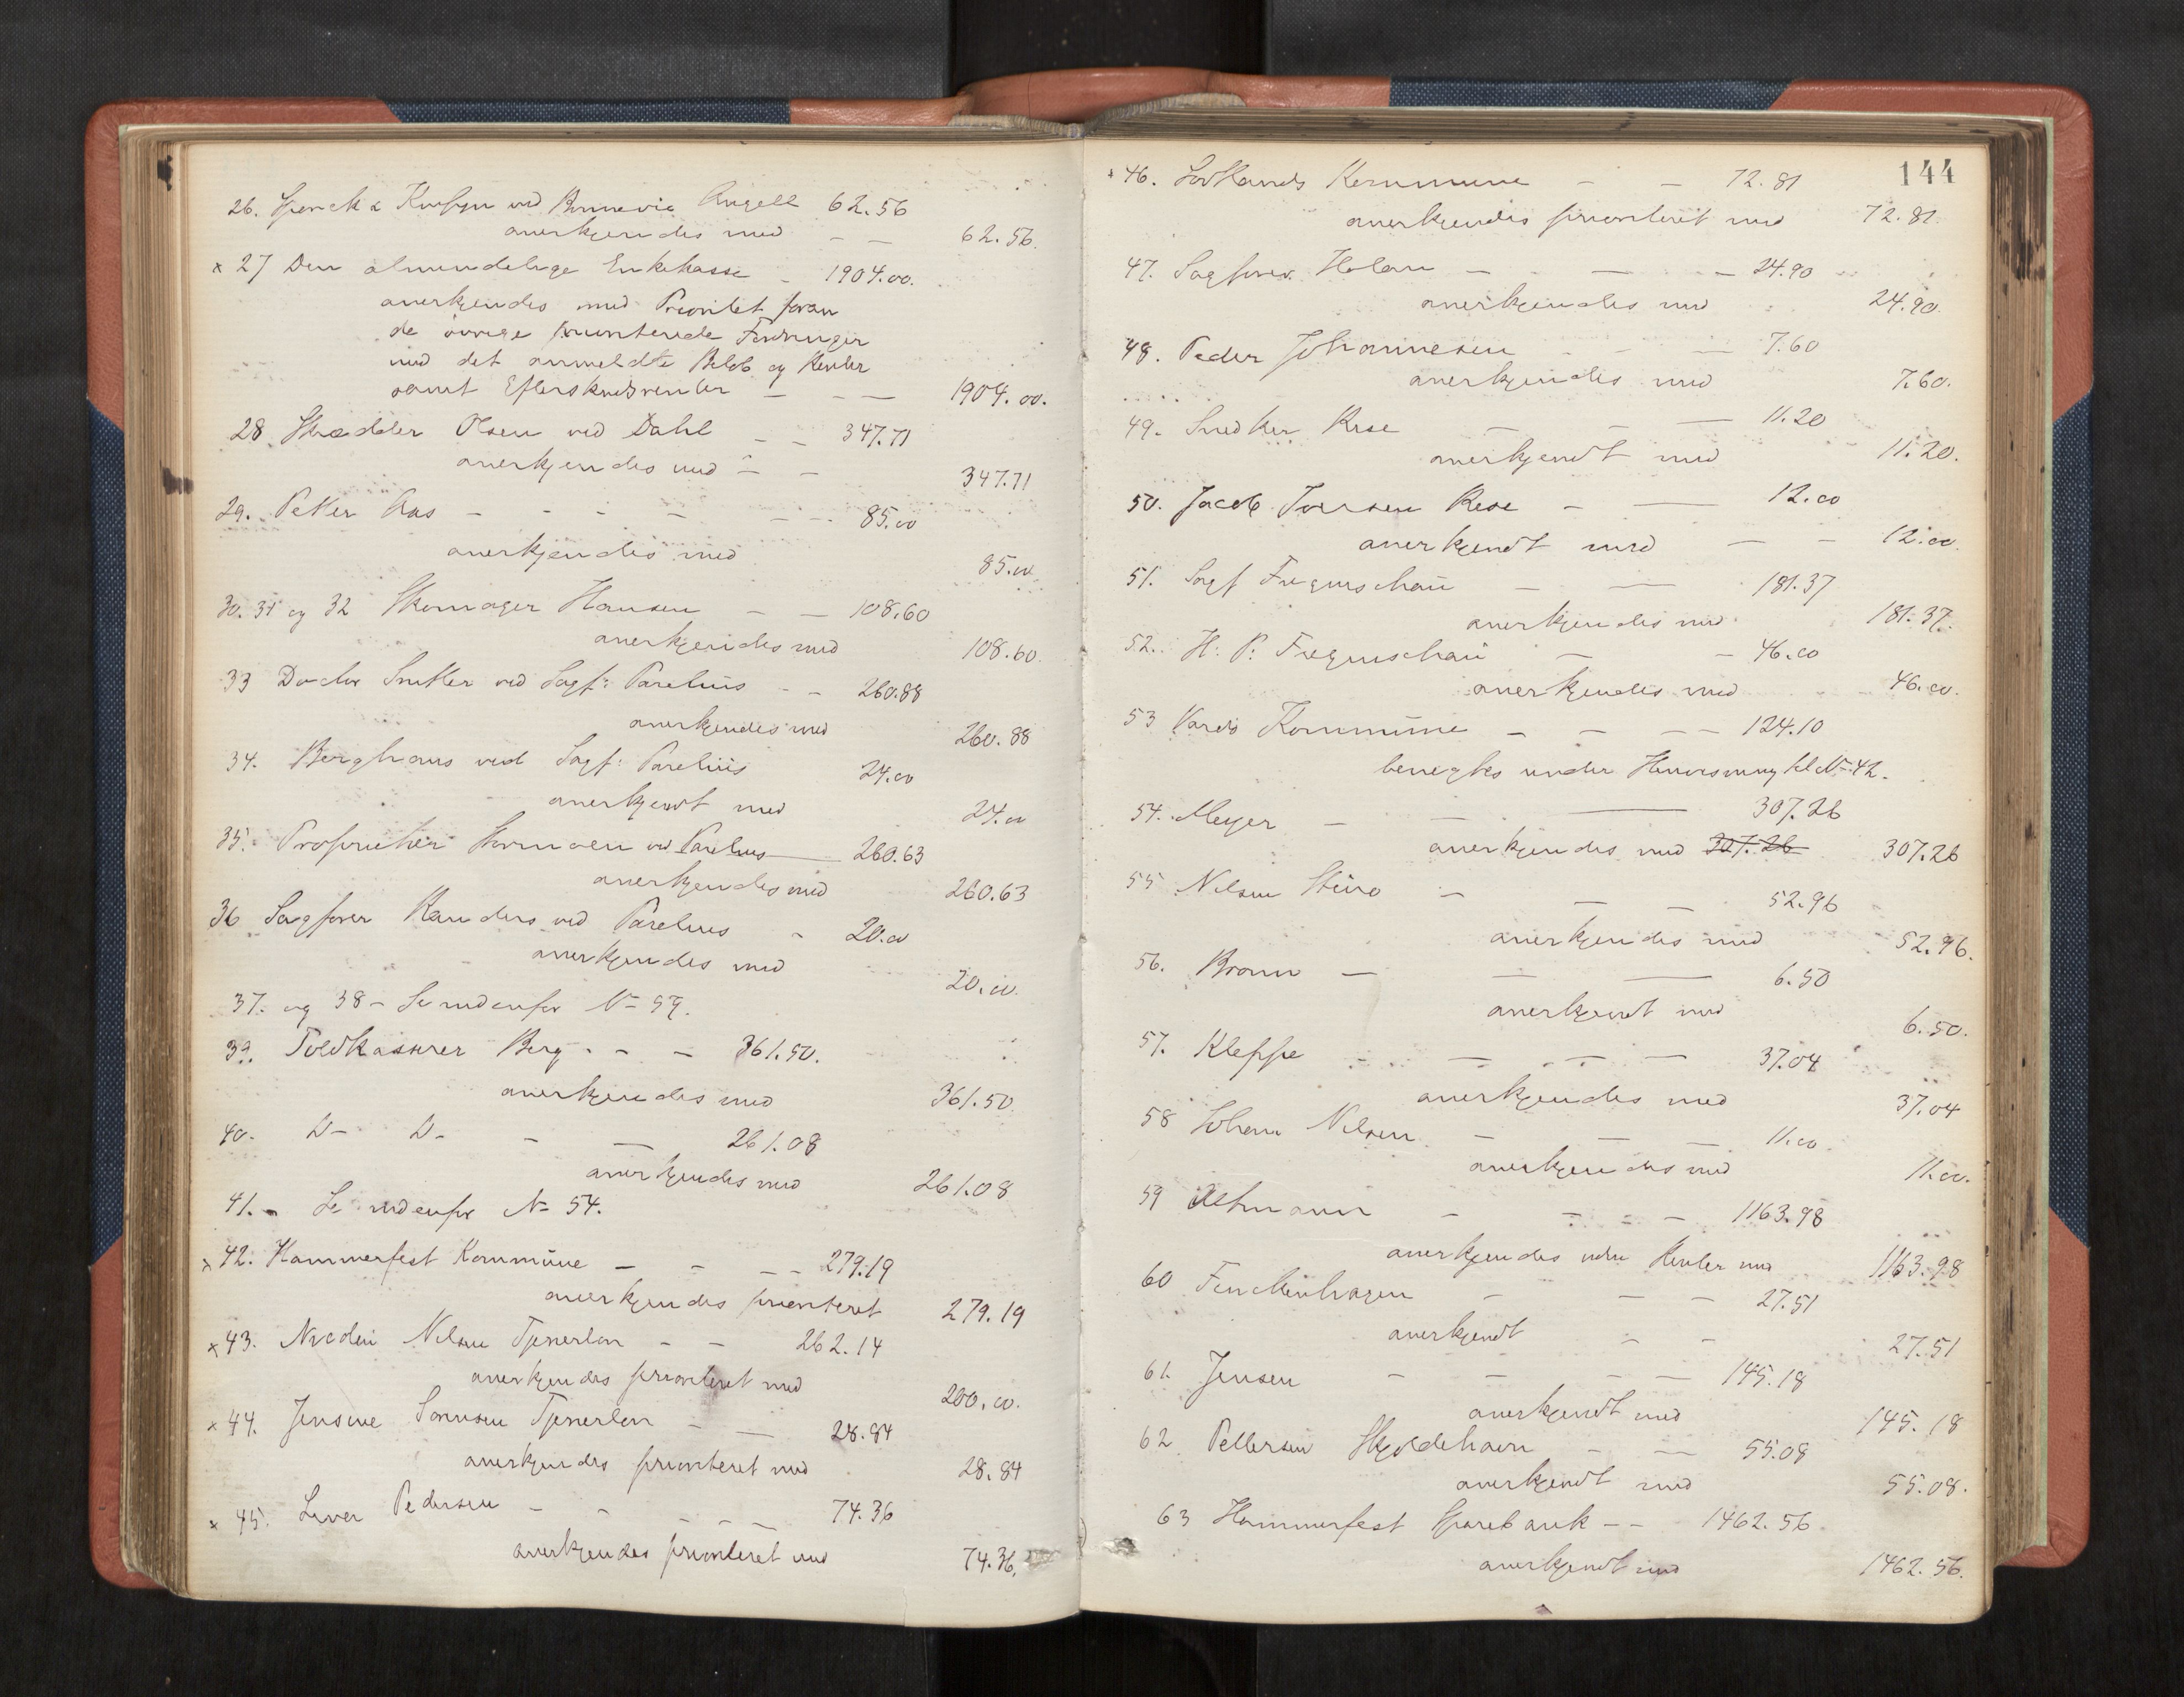 26. Sperck & ved Bonnevie Angell 62.56
anerkjendes med — — 62.56.
x 27 Den almindelige Enkekasse - 1904.00.
anerkjendes med Prioritet foran
de øvrige prioriterede Fordringer
med det anmeldte Beløb og Renter
samt Efterskudsrenter — — — 1904.00.
28. Skrædder Olsen ved Dahl — — 347.71
anerkjendes med — — 347.71
29. Petter Aas - - - - - - 85.00
anerkjendes med 85.00
30. 31 og 32 Skomager Hansen — — 108.60
anerkjendes med 108.60.
33 Doctor ved Sagf: Parelius - - 260.88
anerkjendes med 260.88
34. Berghaus ved Sagf: Parelius 24.00
anerkjendt med 24.00
35. Proprietær Hormoen ved Parelius — 260.63
anerkjendes med 260.63
36 Sagfører Randers ved Parelius - 20.00
anerkjendes med 20.00.
37. og 38 - Se nedenfor No 59.
39. Toldkasserer Berg - - - 361.50.
anerkjendes med 361.50.
40. D- D- - — 261.08
anerkjendes med 261.08
41. - Se nedenfor No 54.
x 42. Hammerfest Kommune — - - - 279.19
anerkjendes prioriteret 279.19
x 43. Nilsen Tjenerløn - - 262.14
anerkjendes prioriteret med 200.00.
x 44. Jensine Tjenerløn - — 28.84
anerkjendes prioriteret med 28.84
x 45. Pedersen - - - - - 74.36
anerkjendes prioriteret med 74.36.
144
x 46. Kommune - - 72.81
anerkjendes prioriteret med 72.81.
47. Sagfører Holan - - — - 24.90
anerkjendes med 24.90.
48. Peder Johannesen - - — 7.60
anerkjendes med 7.60.
49. Snedker Rese — - — 11.20
anerkjendt med 11.20.
50. Jacob Iversen Rese - — 12.00
anerkjendt med — — 12.00.
51. Sagf Figenschau — — 181.37
anerkjendes med 181.37.
52. H. P. Figenschau — - 46.00
anerkjendes med 46.00.
53 Vardø Kommune - - - - 124.10
benegtes under Henvisning til No 42.
54. Meyer - - — 307.26
anerkjendes med 307.26 307.26
55 Nilsen - - - 52.96
anerkjendes med 52.96.
56. Bronn — — — 6.50
anerkjendt med 6.50.
57. Kleppe - — - — 37.04
anerkjendes med 37.04
58 Johan Nilsen - — — 11.00
anerkjendes med 11.00.
59 - - - - 1163.98
anerkjendes uden Renter med 1163.98
60 Finckenhagen - - - 27.51
anerkjendt - - 27.51
61. Jensen - - - — 145.18
anerkjendt med 145.18
62. Pettersen Skjoldehavn - — 55.08
anerkjendt med 55.08.
63 Hammerfest Sparebank - - 1462.56.
anerkjendt med 1462.56.